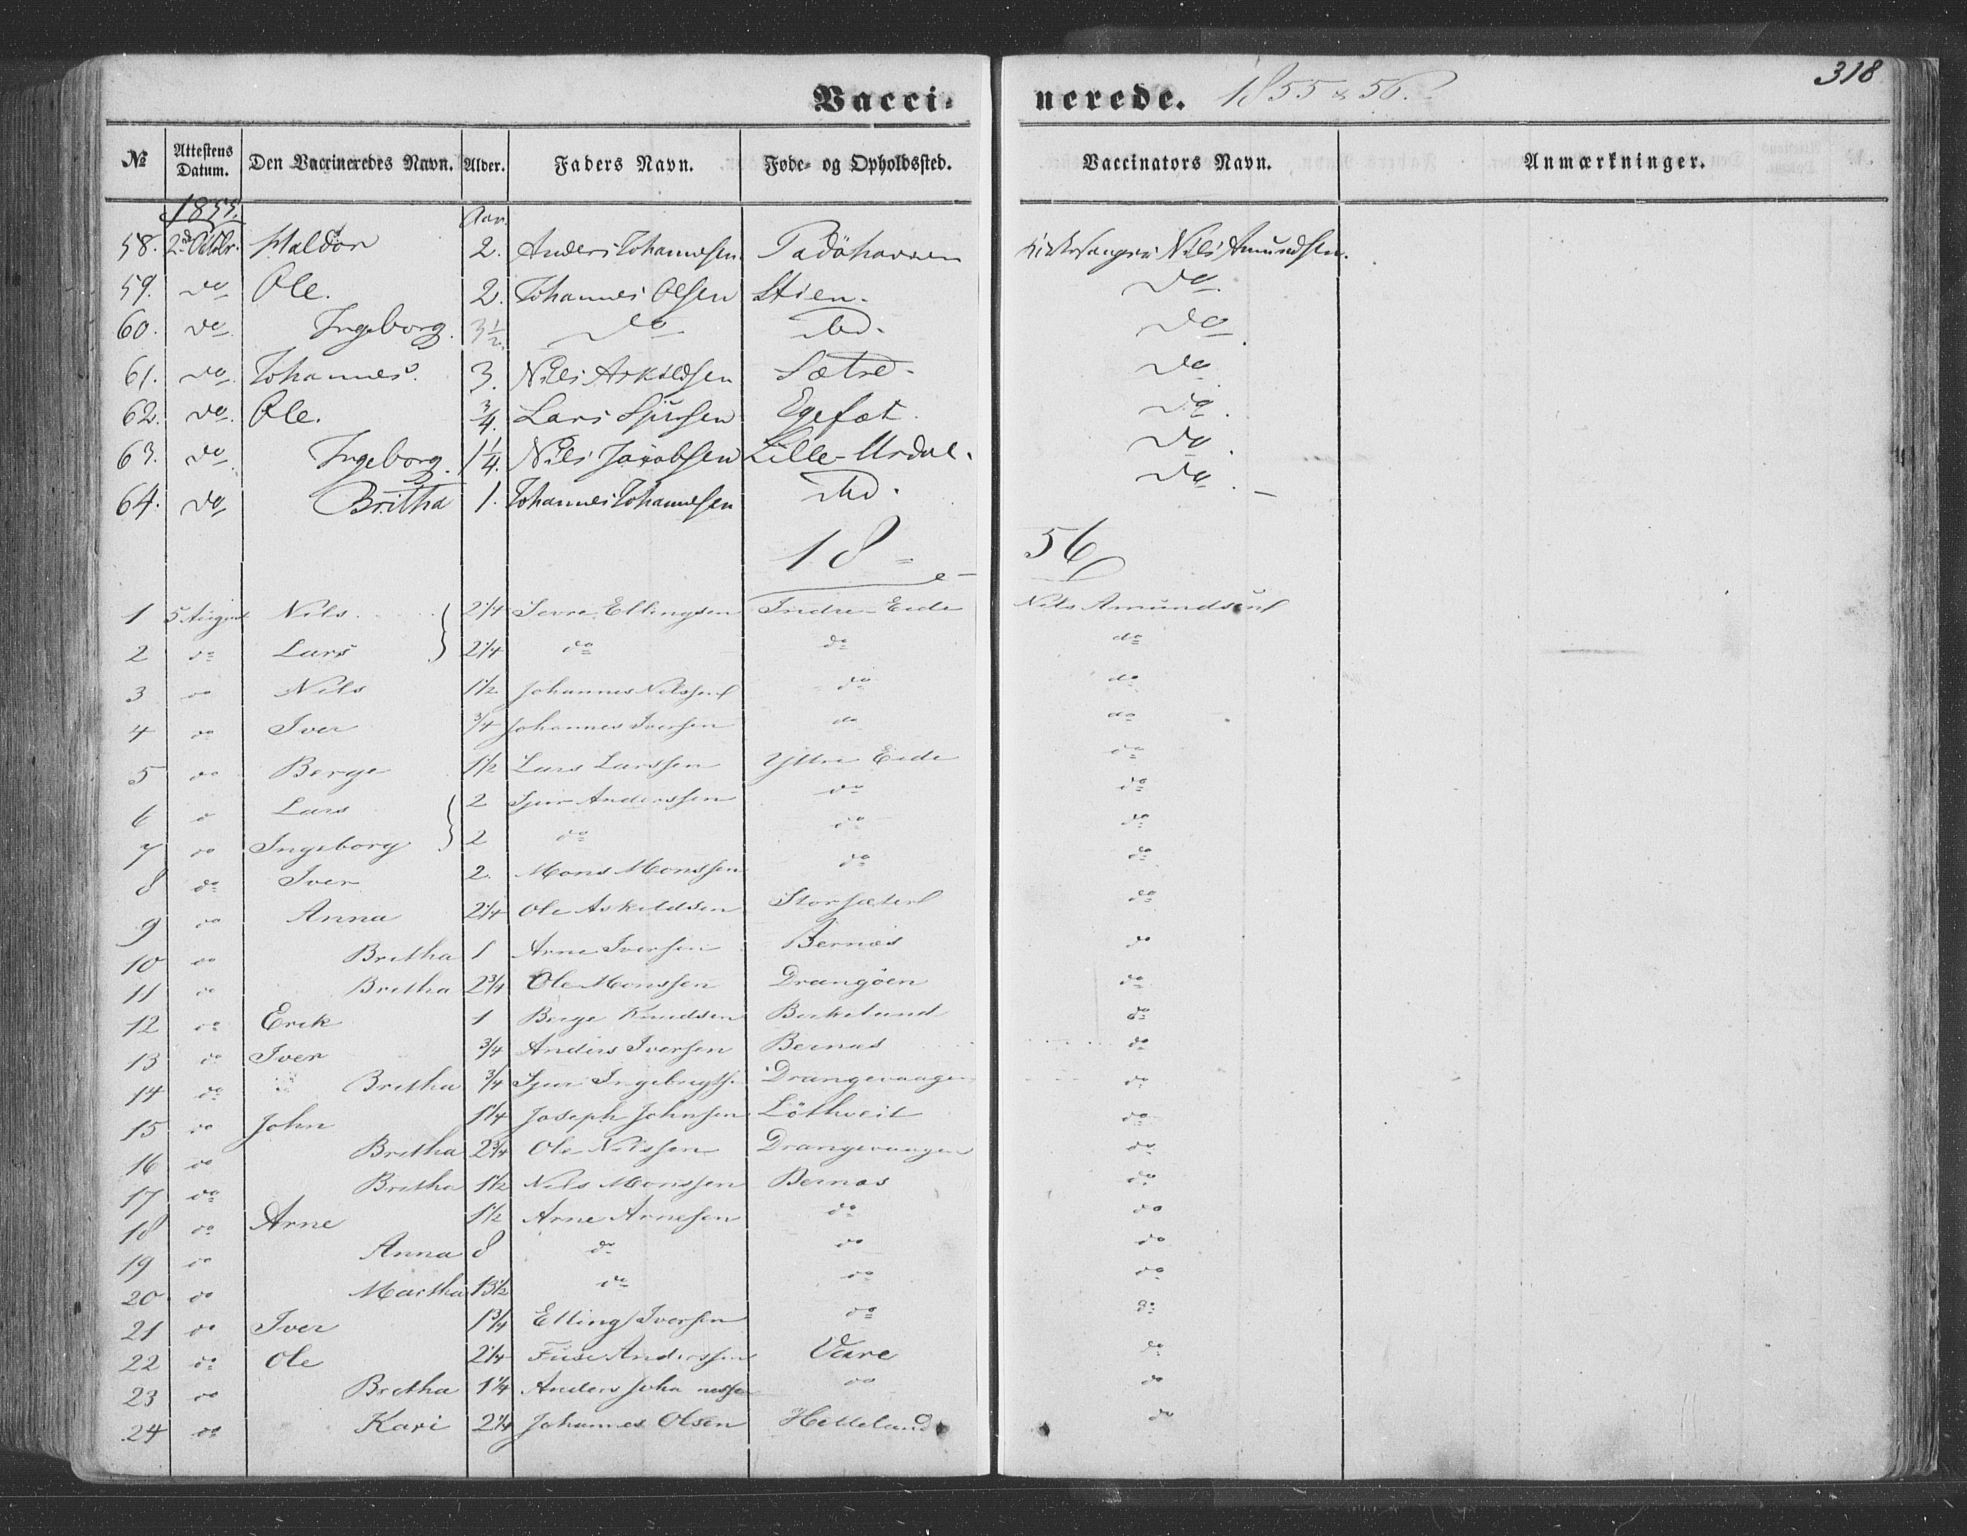 318
Vacci- nerede. 1855 & 56.
№ Attestens Datum. Den Vaccineredes Navn. Alder. Faders Navn. Føde- og Opholdssted. Vaccinators Navn. Anmærkninger.
1855. Aar.
58. 2den Octbr. Haldor 2. Anders Johannessen Kirkesanger Nils Amundsen.
59. do Ole. 2. Johannes Olsen Stien. do.
60. do. Ingeborg. 3 1/2 do ibd. do.
61. do. Johannes. 3. Nils Askildsen Sætre. do.
62. do. Ole. 3/4. Lars Sjursen Egefæt. do.
63. do. Ingeborg. 1 1/4. Nils Jacobsen Lille-Urdal. do.
64. do Britha 1. Johannes Johannessen ibd. do.
18 56
1 5 August Nils 2 1/4 Sevre Ellingsen Indre Eide Nils Amundsen
2 do Lars 2 1/4 do do do
3 do Nils 1 1/2 Johannes Nilssen do do
4 do Iver 3/4 Johannes Iversen do do
5 do Berge 1 1/2 Lars Larssen Yttre Eide do
6 do Lars 2 Sjur Anderssen do do
7 do Ingeborg 2 do do do
8 do Iver 2. Mons Monssen do do
9 do Anna 2 1/4 Ole Askildsen Storsæter do
10 do Britha 1 Arne Iversen Bernæs do
11 do Britha 2 3/4 Ole Monssen Drangøen do
12 do Erik 1 Berge Knudsen Birkeland do
13 do Iver 3/4 Anders Iversen Bernæs do
14 do Britha 3/4 Sjur Ingebrigts Drangevaagen do
15 do John 1 1/4 Joseph Johnsen Løthveit do
16 do Britha 2 3/4 Ole Nilssen Drangevaagen do
17 do Britha 1 1/2 Nils Monssen Bernæs do
18 do Arne 1 1/2 Arne Arnesen do do
19 do Anna 8 do do do
20 do Martha 13 1/2 do do do
21 do Iver 1 3/4 Elling Iversen do do
22 do Ole 2 1/4 Fuse Anderssen Vaare do
23 do Britha 1 1/4 Anders Johannessen do do
24 do Kari 2 1/4 Johannes Olsen Helleland do